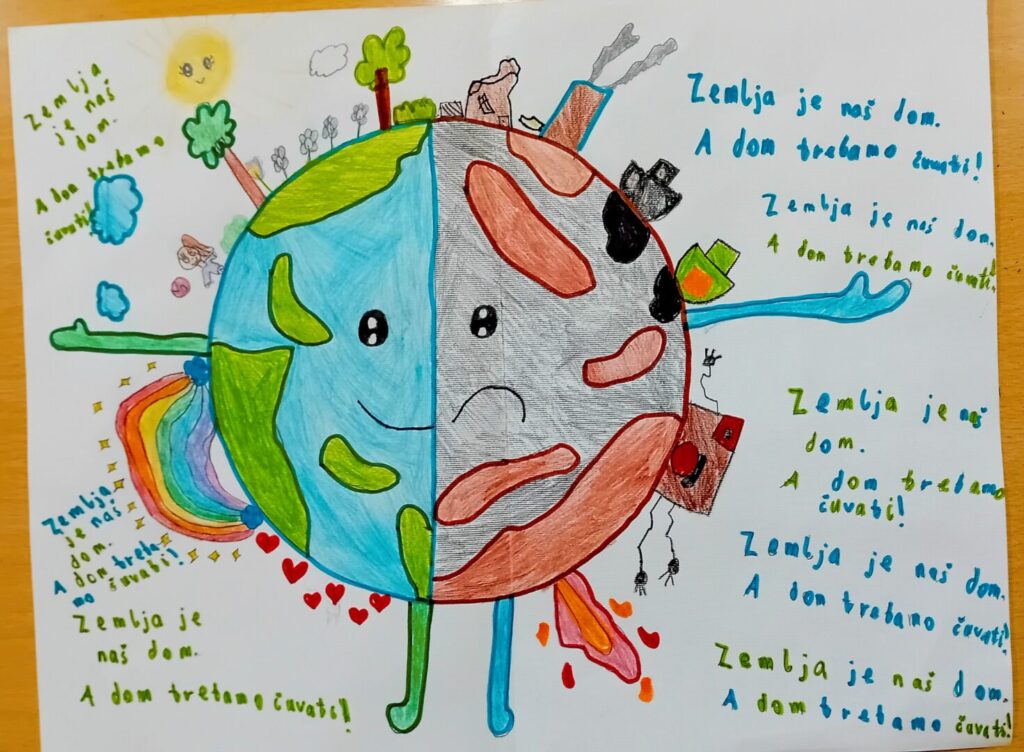 Zemlja
je naš
dom.
A dom trebamo
čuvati!
Zemlja
je naš
dom.
A dom treba-
mo čuvati!
Zemlja je
naš dom.
A dom trebamo čuvati!
Zemlja je naš dom.
A dom trebamo čuvati!
Zemlja je naš dom.
A dom trebamo čuvati!
Zemlja je naš
dom.
A dom trebamo
čuvati!
Zemlja je naš dom.
A dom trebamo čuvati!
Zemlja je naš dom.
A dom trebamo čuvati!